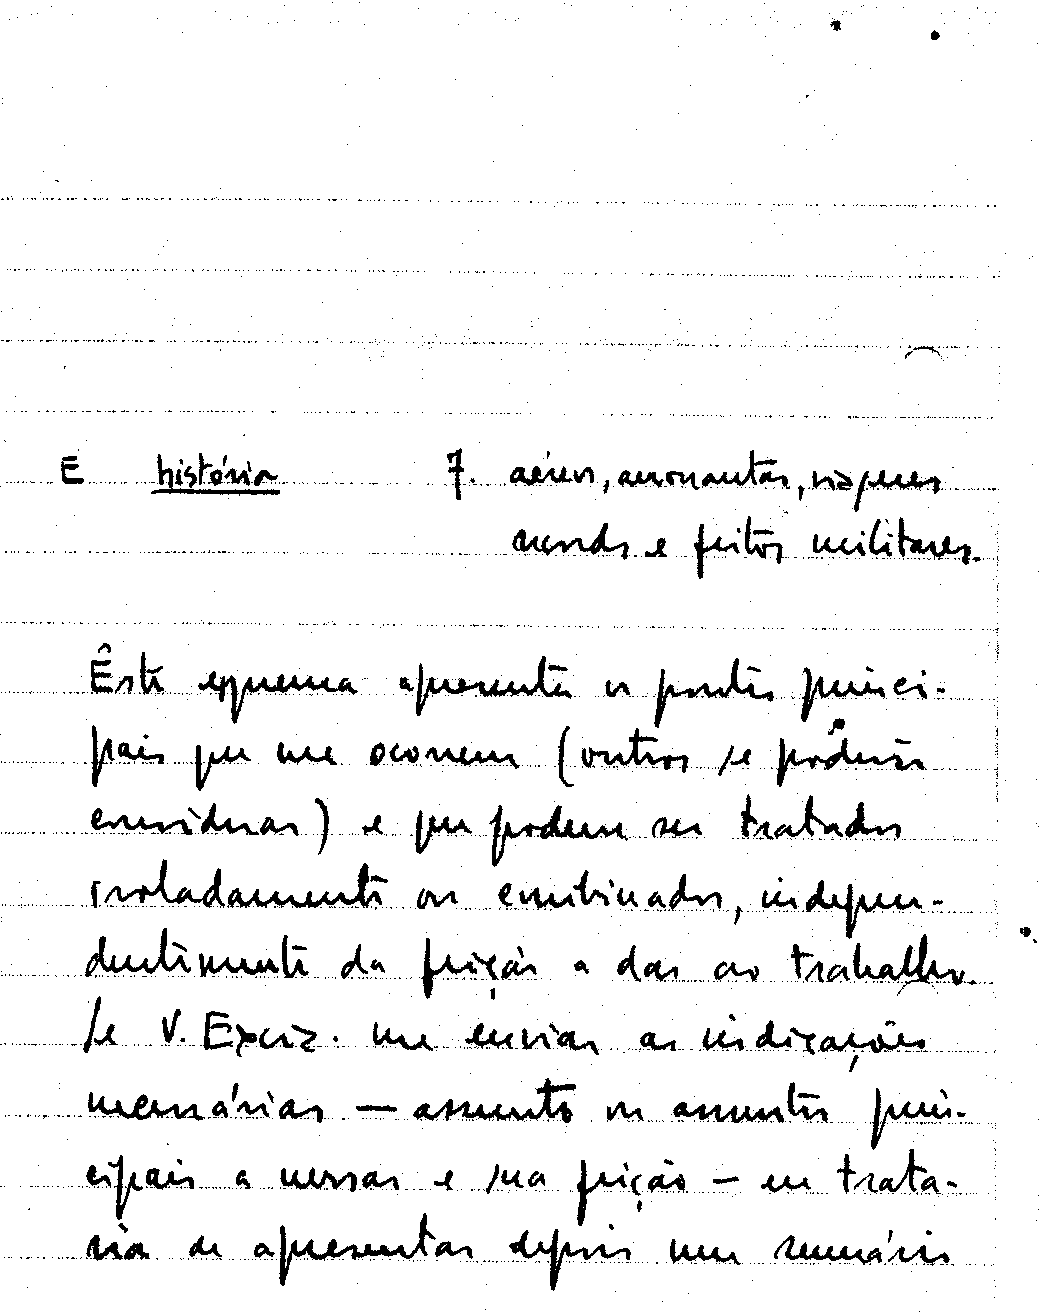 E história 7. aéreos, aeronautas, viagens
records e feitos militares.
Êste esquema apresenta os pontos princi-
pais que me ocorrem (outros se poderão
considerar) e que podem ser tratados
isoladamente ou combinados, indepen-
dentemente da feição a dar ao trabalho.
Se V. Excia. me enviar as indicações
necessárias — assunto ou assuntos prin-
cipais a versar e sua feição — eu trata-
ria de apresentar depois um sumário